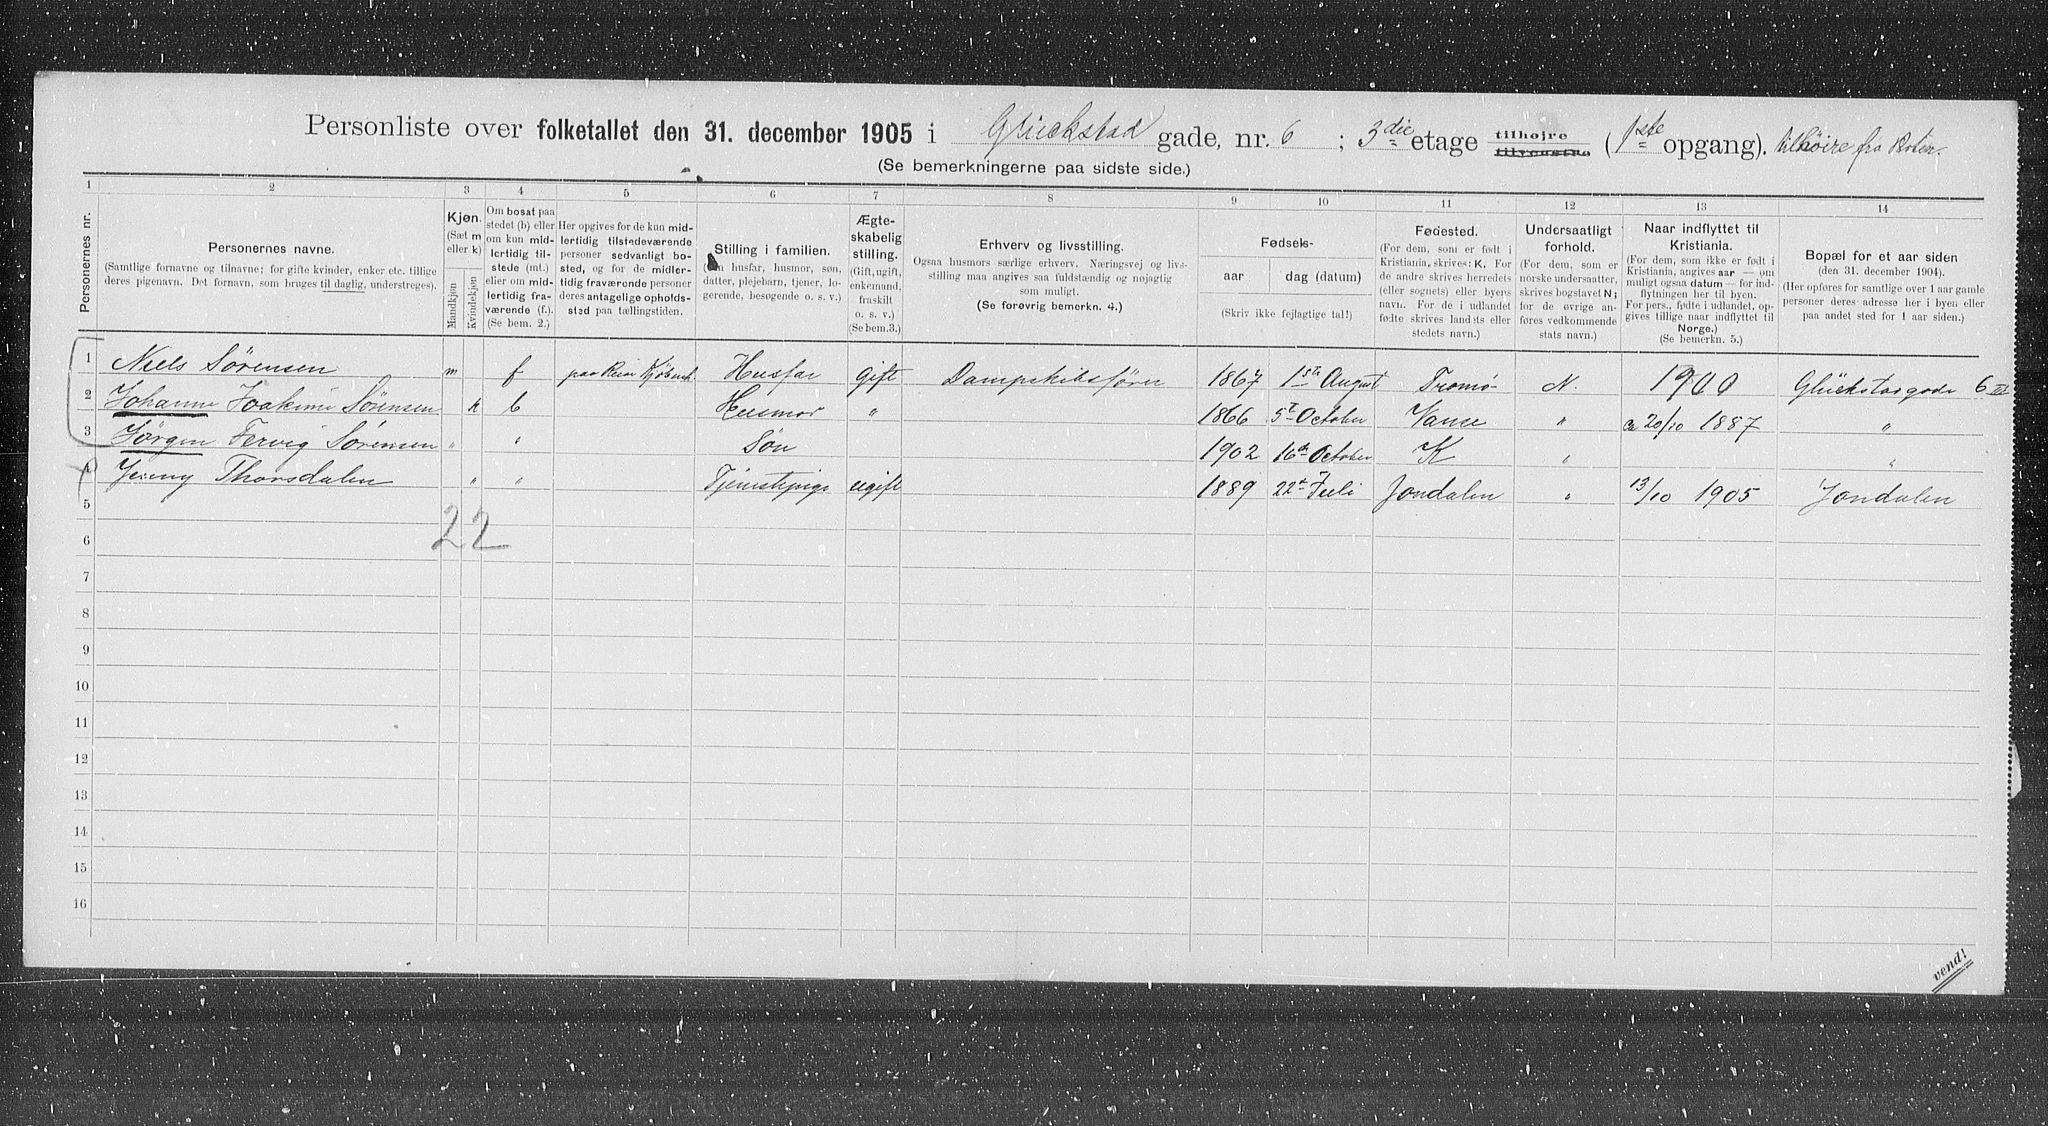 Personliste over folketallet den 31. december 1905 i Glückstad gade, nr. 6 ; 3die etage tilhøjre tilvenstre (1ste opgang). tilhøire fra
(Se bemerkningerne paa sidste side.)
1 2 3 4 5 6 7 8 9 10 11 12 13 14
Personernes nr.
Personernes navne.
(Samtlige fornavne og tilnavne; for gifte kvinder, enker etc. tillige
deres pigenavn. Det fornavn, som bruges til daglig, understreges).
Kjøn.
(Sæt m
eller k)
Mandkjøn
Kvindekjøn
Om bosat paa
stedet (b) eller
om kun mid-
lertidig til-
stede (mt.)
eller om mid-
lertidig fra-
værende (f.).
(Se bem. 2.)
Her opgives for de kun mid-
lertidig tilstedeværende
personer sedvanligt bo-
sted, og for de midler-
tidig fraværende personer
deres antagelige opholds-
sted paa tællingstiden.
Stilling i familien.
(om husfar, husmor, søn,
datter, plejebarn, tjener, lo-
gerende, besøgende o. s. v.)
Ægte-
skabelig
stilling.
(Gift, ugift,
enkemand,
fraskilt
o. s. v.)
(Se bem.3.)
Erhverv og livsstilling.
Ogsaa husmors særlige erhverv. Næringsvej og livs-
stilling maa angives saa fuldstændig og nøjagtig
som muligt.
(Se forøvrig bemerkn. 4.)
Fødsels-
aar
dag (datum)
(Skriv ikke fejlagtige tal!)
Fødested.
(For dem, som er født i
Kristiania, skrives: K. For
de andre skrives herredets
(eller sognets) eller byens
navn. For de i udlandet
fødte skrives landets eller
stedets navn.)
Undersaatligt
forhold.
(For dem, som er
norske undersaatter,
skrives bogstavet N;
for de øvrige an-
føres vedkommende
stats navn.)
Naar indflyttet til
Kristiania.
(For dem, som ikke er født i
Kristiania, angives aar — om
muligt ogsaa datum — for ind-
flytningen her til byen.
For pers., fødte i udlandet, op-
gives tillige naar indflyttet til
Norge.)
(Se bemerkn. 5.)
Bopæl for et aar siden
(den 31. december 1904).
(Her opføres for samtlige over 1 aar gamle
personer deres adresse her i byen eller
paa andet sted for 1 aar siden.)
1 Niels Sørensen m f paa Reise Husfar gift Dampskibsfører 1867 1ste August Tromø N. 1900 Glückstadgade 6 III
2 Johanne Joakime Sørensen k b Husmor " 1866 5t October Vanse " ca 20/10 1887 "
3 Jørgen Fervig Sørensen " " Søn 1902 16de October K " "
4 Jenny Thorsdalen " " Tjenestepige ugift 1889 22de Juli Jondalen " 13/10 1905 Jondalen
5
22
6
7
8
9
10
11
12
13
14
15
16
vend!